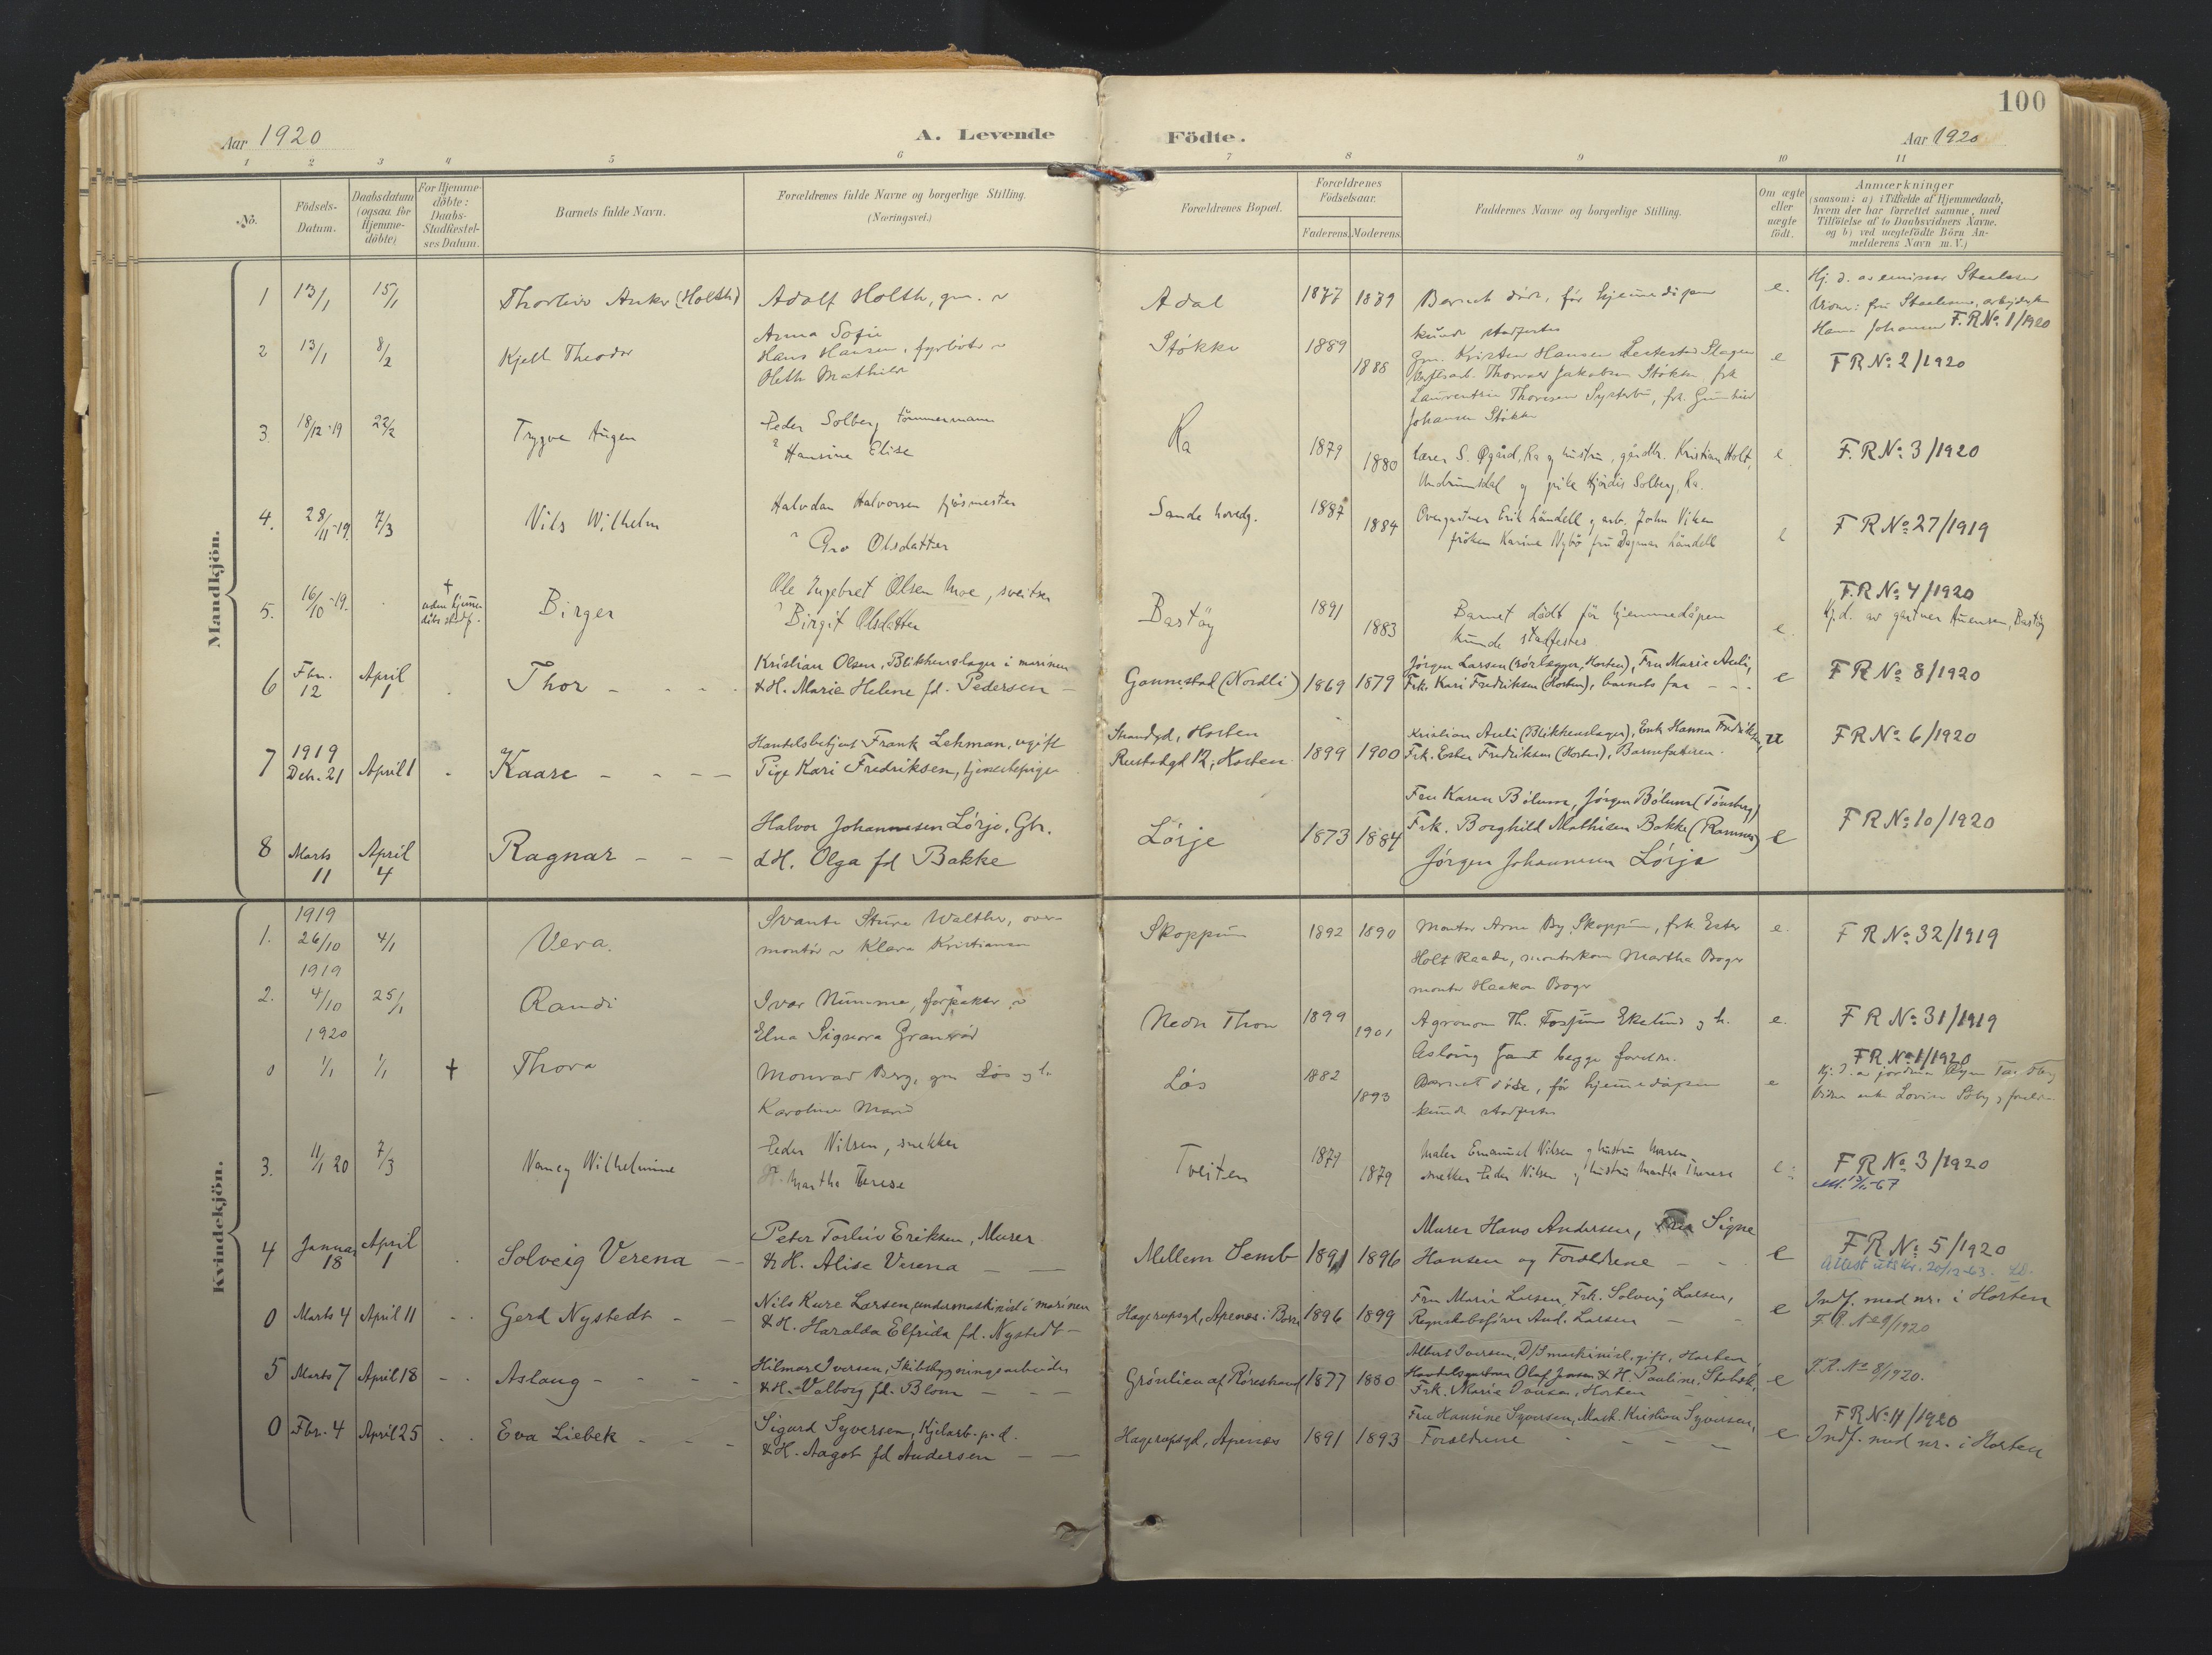 100
Aar 1920
A. Levende Födte.
Aar 1920
1 2 3 4 5 6 7 8 9 10 11
No.
Födsels-Datum.
Daabsdatum (ogsaa for Hjemme-döbte)
For Hjemme-döbte: Daabs-Stadfæstel-ses Datum.
Barnets fulde Navn.
Forældrenes fulde Navne og borgerlige Stilling.
(Næringsvei.)
Forældrenes Bopæl.
Forældrenes Födselsaar.
Faderens. Moderens.
Faddernes Navne og borgerlige Stilling.
Om ægte eller uægte födt.
Anmærkninger
(saasom: a) i Tilfælde af Hjemmedaab,
hvem der har forrettet samme, med
Tilföielse af to Daabsvidners Navne.
og b) ved uægtefödte Börn An-
melderens Navn m. V.)
Mandkjön.
1 13/1 15/1 Thorleiv Anker (Holth) Adolf Holth, gm. Adal 1877 1879 Barnet før hjemmedåpen e.
Anna Sofie kunde stadfestes Johansen F.R No. 1/1920
2 13/1 8/2 Kjell Theodor Hans Hansen, fyrbøter Støkke 1889 1888 Gm. Kristen Hansen Slagen e F R No: 2/1920
Mathilde Thorvald Jakobsen Støkke frk
Thoresen frk.
Johansen Støkke
3. 18/12-19 22/2 Trygve Augen Peder Solberg tömmermann Ra 1879 1880 lærer S. Øgård, Ra og hustru, gårdbr. Kristian Holt, e F. R No: 3/1920
Hansine Elise Undrumsdal og pike Hjördis Solberg, Ra.
4. 28/11-19. 7/3 Nils Wilhelm Halvdan Halvorsen fjösmester Sande hovedg. 1887 1884 Overgartner Erik Håndell og arb. John Viken e F R No: 27/1919
Gro Olsdatter fröken Karine Nybö fru Dagmar Håndell
5. 16/10-19. † uden hjemme-döbs stadf. Birger Ole Ingebret Olsen Moe, sveitser Bastöy 1891 1883 Barnet dödt för hjemmedåpen e. F.R No: 4/1920
Birgit Olsdatter kunde stadfestes Hj.d. av gartner Bastöy
6 Fbr. 12 April 1 Thor - - - Kristian Olsen, Blikkenslager i marinen Gannestad (Nordli) 1869 1879 Jörgen Larsen (rörlægger, Horten), Fru Marie Auli, e F R No 8/1920
& H. Marie Helene fd. Pedersen - Frk. Kari Fredriksen (Horten), barnets far - - -
7 1919 Dcb. 21 April 1 Kaare - - - - Handelsbetjent Frank Lehman, ugift Strandgd, Horten 1899 1900 Kristian Auli (Blikkenslager), Enk. Hanna Fredriksen, u F R No: 6/1920
Pige Kari Fredriksen, tjenestepige 12, Horten Frk. Ester Fredriksen (Horten), Barnefaderen.
8 Marts 11 April 4 Ragnar - - - Halvor Johannesen Lörje, Gbr. Lörje 1873 1884 Fru Karen Bölum, Jörgen Bölum (Tönsberg) e F R No: 10/1920
& H. Olga fd Bakke Frk. Borghild Mathisen Bakke (Ramnes)
Jörgen Johannesen Lörje
Kvindekjön.
1. 1919 26/10 4/1 Vera. Svante Sture Walther, over- Skoppum 1892 1890 Montør Arne By, Skoppum, frk Ester e. F R No: 32/1919
montør Klara Kristiansen Holt Raade, Martha Boger
montør Haakon Boger
2. 1919 4/10 25/1 Randi Ivar Numme, forpakter Nedre Thon 1899 1901 Agronom Th. e. F R No: 31/1919
Elna Signora Aslaug samt begge foreldre.
0 1920 1/1 1/1 † Thora Monrad Berg, gm Løs Løs 1882 1893 Barnet døde, før hjemmedåpen e FR No: 1/1920
Karoline Marie kunde stadfestes
3. 11/1 20 7/3 Nancy Wilhelmine Peder Nilsen, snekker Tveiten 1879 1879 Maler Emanuel Nilsen og hustru Maren, e: F R No 3/1920
H. Martha Therese snekker Peder Nilsen og hustru Martha Therese
4 Januar 18 April 1 Solveig Verena - - Peter Torleiv Eriksen, Murer Mellem Semb 1891 1896 Murer Hans Andersen, Fru Signe e F R No: 5/1920
& H. Alise Verena - - Hansen og Forældrene - - Attest utskr. 20/12-63.
0 Marts 4 April 11 Gerd Nystedt - - Nils Kure Larsen, undermaskinist i marinen Hagerupsgd, Apenes i Borre 1896 1899 Fru Marie Larsen, Frk. Solveig Larsen, e Indf. med nr. i Horten
& H. Haralda Elfrida fd. Nystedt - Regnskabsförer Aud. Larsen - F.R. No 9/1920
5 Marts 7 April 18 - - Aslaug - - - - Hilmar Iversen, Skibsbygningsarbeider Grönlien af Rörestrand 1877 1880 Albert Iversen, D/S maskinist, gift, Horten, e F.R. No 8/1920.
& H. Valborg fd. Blom - - - Handelsgartner Olaf Jensen & H. Pauline,
Frk. Marie Horten
0 Fbr. 4 April 25 Eva Liebek - - - Sigurd Syversen, Kjelarb. Hagerupsgd, Apenes 1891 1893 Fru Hansine Syversen, Mask. Kristian Syversen, e FR No: 11/1920
& H. Aagot fd Andersen - - Forældrene - - - - Indf. med nr. i Horten